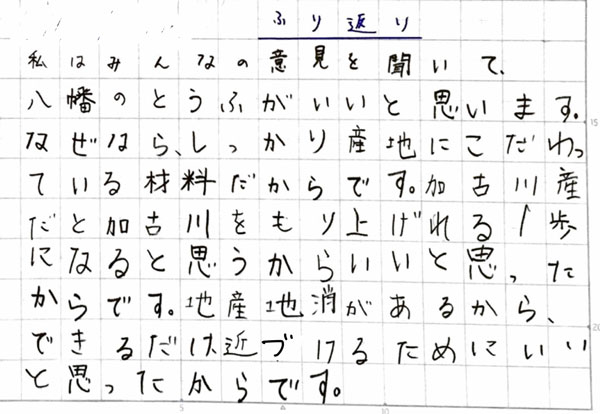 ふり返り
私はみんなの意見を聞いて、
八幡のとうふがいいと思います。
なぜなら、しっかり産地にこだわっ
ている材料だからです。加古川産
だと加古川をもり上げれる1歩
になると思うからいいと思った
からです。地産地消があるから、
できるだけ近づけるためにいい
と思ったからです。